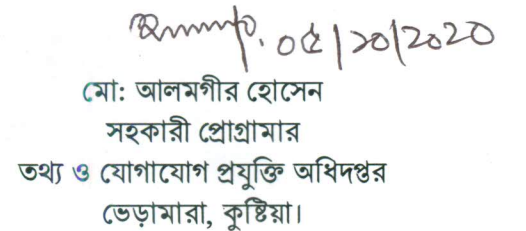 ০৫/১০/২০২০
মো: আলমগীর হোসেন
সহকারী প্রোগ্রামার
তথ্য ও যোগাযোগ প্রযুক্তি অধিদপ্তর
ভেড়ামারা, কুষ্টিয়া।